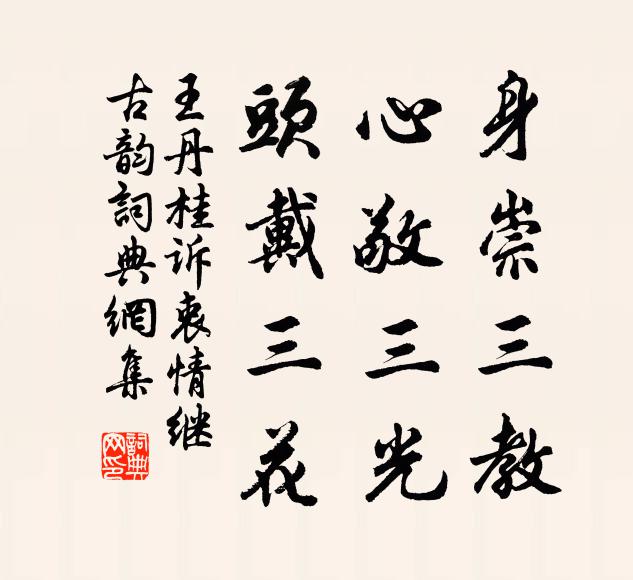 身崇三教
心敬三光
頭戴三花
王丹桂诉衷情继
古韵詞典網集
詞典
网印